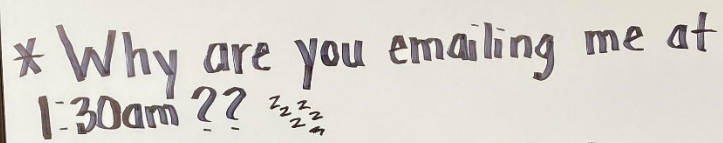 * Why are you emailing me at
1:30am ?? zzzzzz